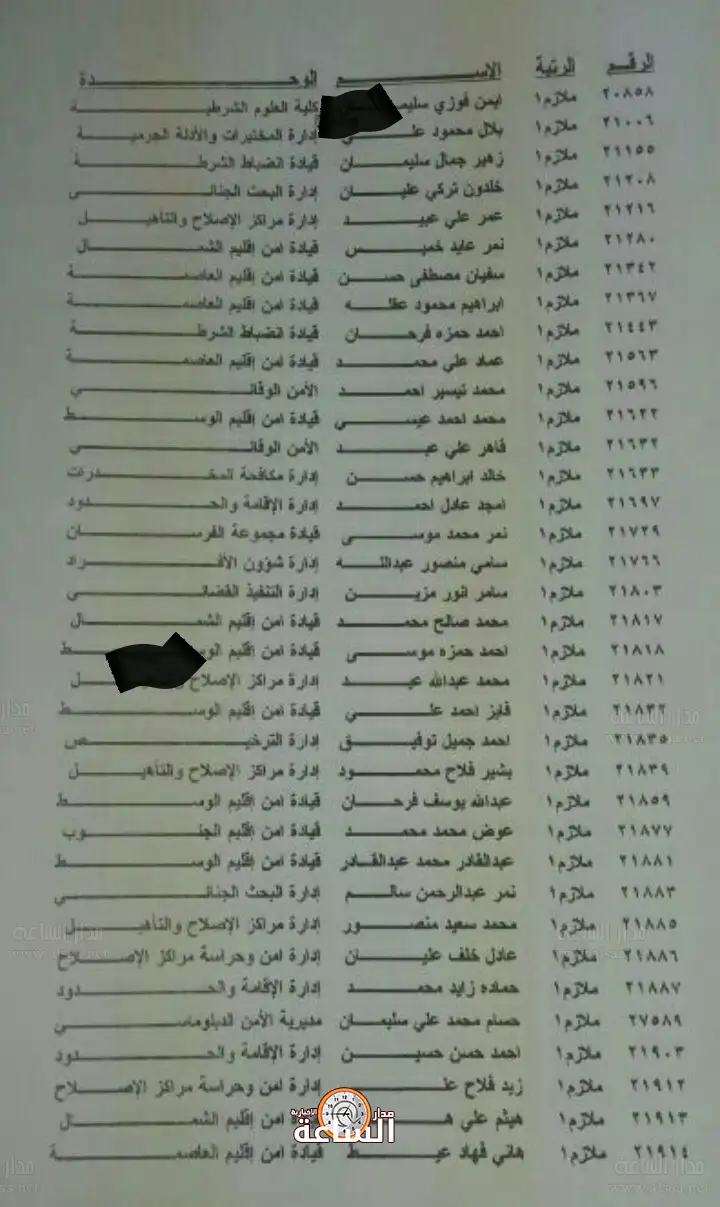 الرقم الرتبة الاسم الوحدة
٢٠٨٥٨ ملازم١ ايمن فوزي كلية العلوم الشرطية
٢١٠٠٦ ملازم١ بلال محمود علي إدارة المختبرات والأدلة الجرمية
٢١١٥٥ ملازم١ زهير جمال سليمان قيادة الضباط الشرطة
٢١٢٠٨ ملازم١ خلدون تركي عليان إدارة البحث الجنائي
٢١٢١٦ ملازم١ عمر علي عبيد إدارة مراكز الإصلاح والتأهيل
٢١٢٨٠ ملازم١ نمر عايد خميس قيادة امن إقليم الشمال
٢١٣٤٢ ملازم١ سفيان مصطفى حسن قيادة امن إقليم العاصمة
٢١٣٦٧ ملازم١ ابراهيم محمود عقله قيادة امن إقليم العاصمة
٢١٤٤٣ ملازم١ احمد حمزه فرحان قيادة الضباط الشرطة
٢١٥٦٣ ملازم١ عماد علي محمد قيادة امن إقليم العاصمة
٢١٥٩٦ ملازم١ محمد تيسير احمد الأمن الوقائي
٢١٦٢٢ ملازم١ محمد احمد عيسى قيادة امن إقليم الوسط
٢١٦٣٢ ملازم١ قاهر علي عبد الأمن الوقائي
٢١٦٣٣ ملازم١ خالد ابراهيم حسن إدارة مكافحة المخدرات
٢١٦٩٧ ملازم١ امجد عادل احمد إدارة الإقامة والحدود
٢١٧٢٩ ملازم١ نمر محمد موسى قيادة مجموعة الفرسان
٢١٧٦٦ ملازم١ سامي منصور عبدالله إدارة شؤون الأفراد
٢١٨٠٣ ملازم١ سامر انور مزين إدارة التنفيذ القضائي
٢١٨١٧ ملازم١ محمد صالح محمد قيادة امن إقليم الشمال
٢١٨١٨ ملازم١ احمد حمزه موسى قيادة امن إقليم الوسط
٢١٨٢١ ملازم١ محمد عبدالله عيد إدارة مراكز الإصلاح
٢١٨٣٢ ملازم١ فايز احمد علي قيادة امن إقليم الوسط
٢١٨٣٥ ملازم١ احمد جميل توفيق إدارة الترخيص
٢١٨٣٩ ملازم١ بشير فلاح محمود إدارة مراكز الإصلاح والتأهيل
٢١٨٥٩ ملازم١ عبدالله يوسف فرحان قيادة امن إقليم الوسط
٢١٨٧٧ ملازم١ عوض محمد محمد قيادة امن إقليم الجنوب
٢١٨٨١ ملازم١ عبدالقادر محمد عبدالقادر قيادة امن إقليم الوسط
٢١٨٨٣ ملازم١ نمر عبدالرحمن سالم إدارة البحث الجنائي
٢١٨٨٥ ملازم١ محمد سعيد منصور إدارة مراكز الإصلاح والتأهيل
٢١٨٨٦ ملازم١ عادل خلف عليان إدارة امن وحراسة مراكز الإصلاح
٢١٨٨٧ ملازم١ حماده زايد محمد إدارة الإقامة والحدود
٢٧٥٨٩ ملازم١ حسام محمد علي سليمان مديرية الأمن الدبلوماسي
٢١٩٠٣ ملازم١ احمد حسن حسين إدارة الإقامة والحدود
٢١٩١٢ ملازم١ زيد فلاح إدارة امن وحراسة مراكز الإصلاح
٢١٩١٣ ملازم١ هيثم علي قيادة امن إقليم الشمال
٢١٩١٤ ملازم١ هاني فهاد عيط قيادة امن إقليم العاصمة
مدار الساعة الاخبارية